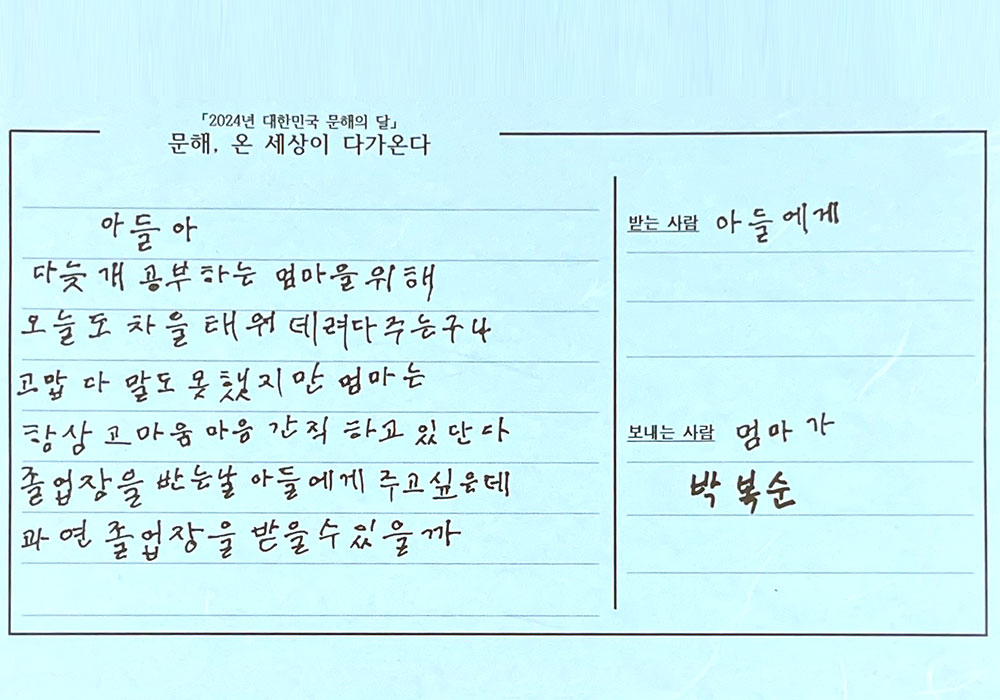 「2024년 대한민국 문해의 달」
문해, 온 세상이 다가온다
아들아
다늦게 공부하는 엄마을위해
오늘도 차을 태워 데려다주는구나
고맙다 말도 못했지만 엄마는
항상 고마움 마음 간직 하고 있단다
졸업장을 받는날 아들에게 주고싶은데
과연 졸업장을 받을수있을까
받는 사람 아들에게
보내는 사람 엄마가
박복순